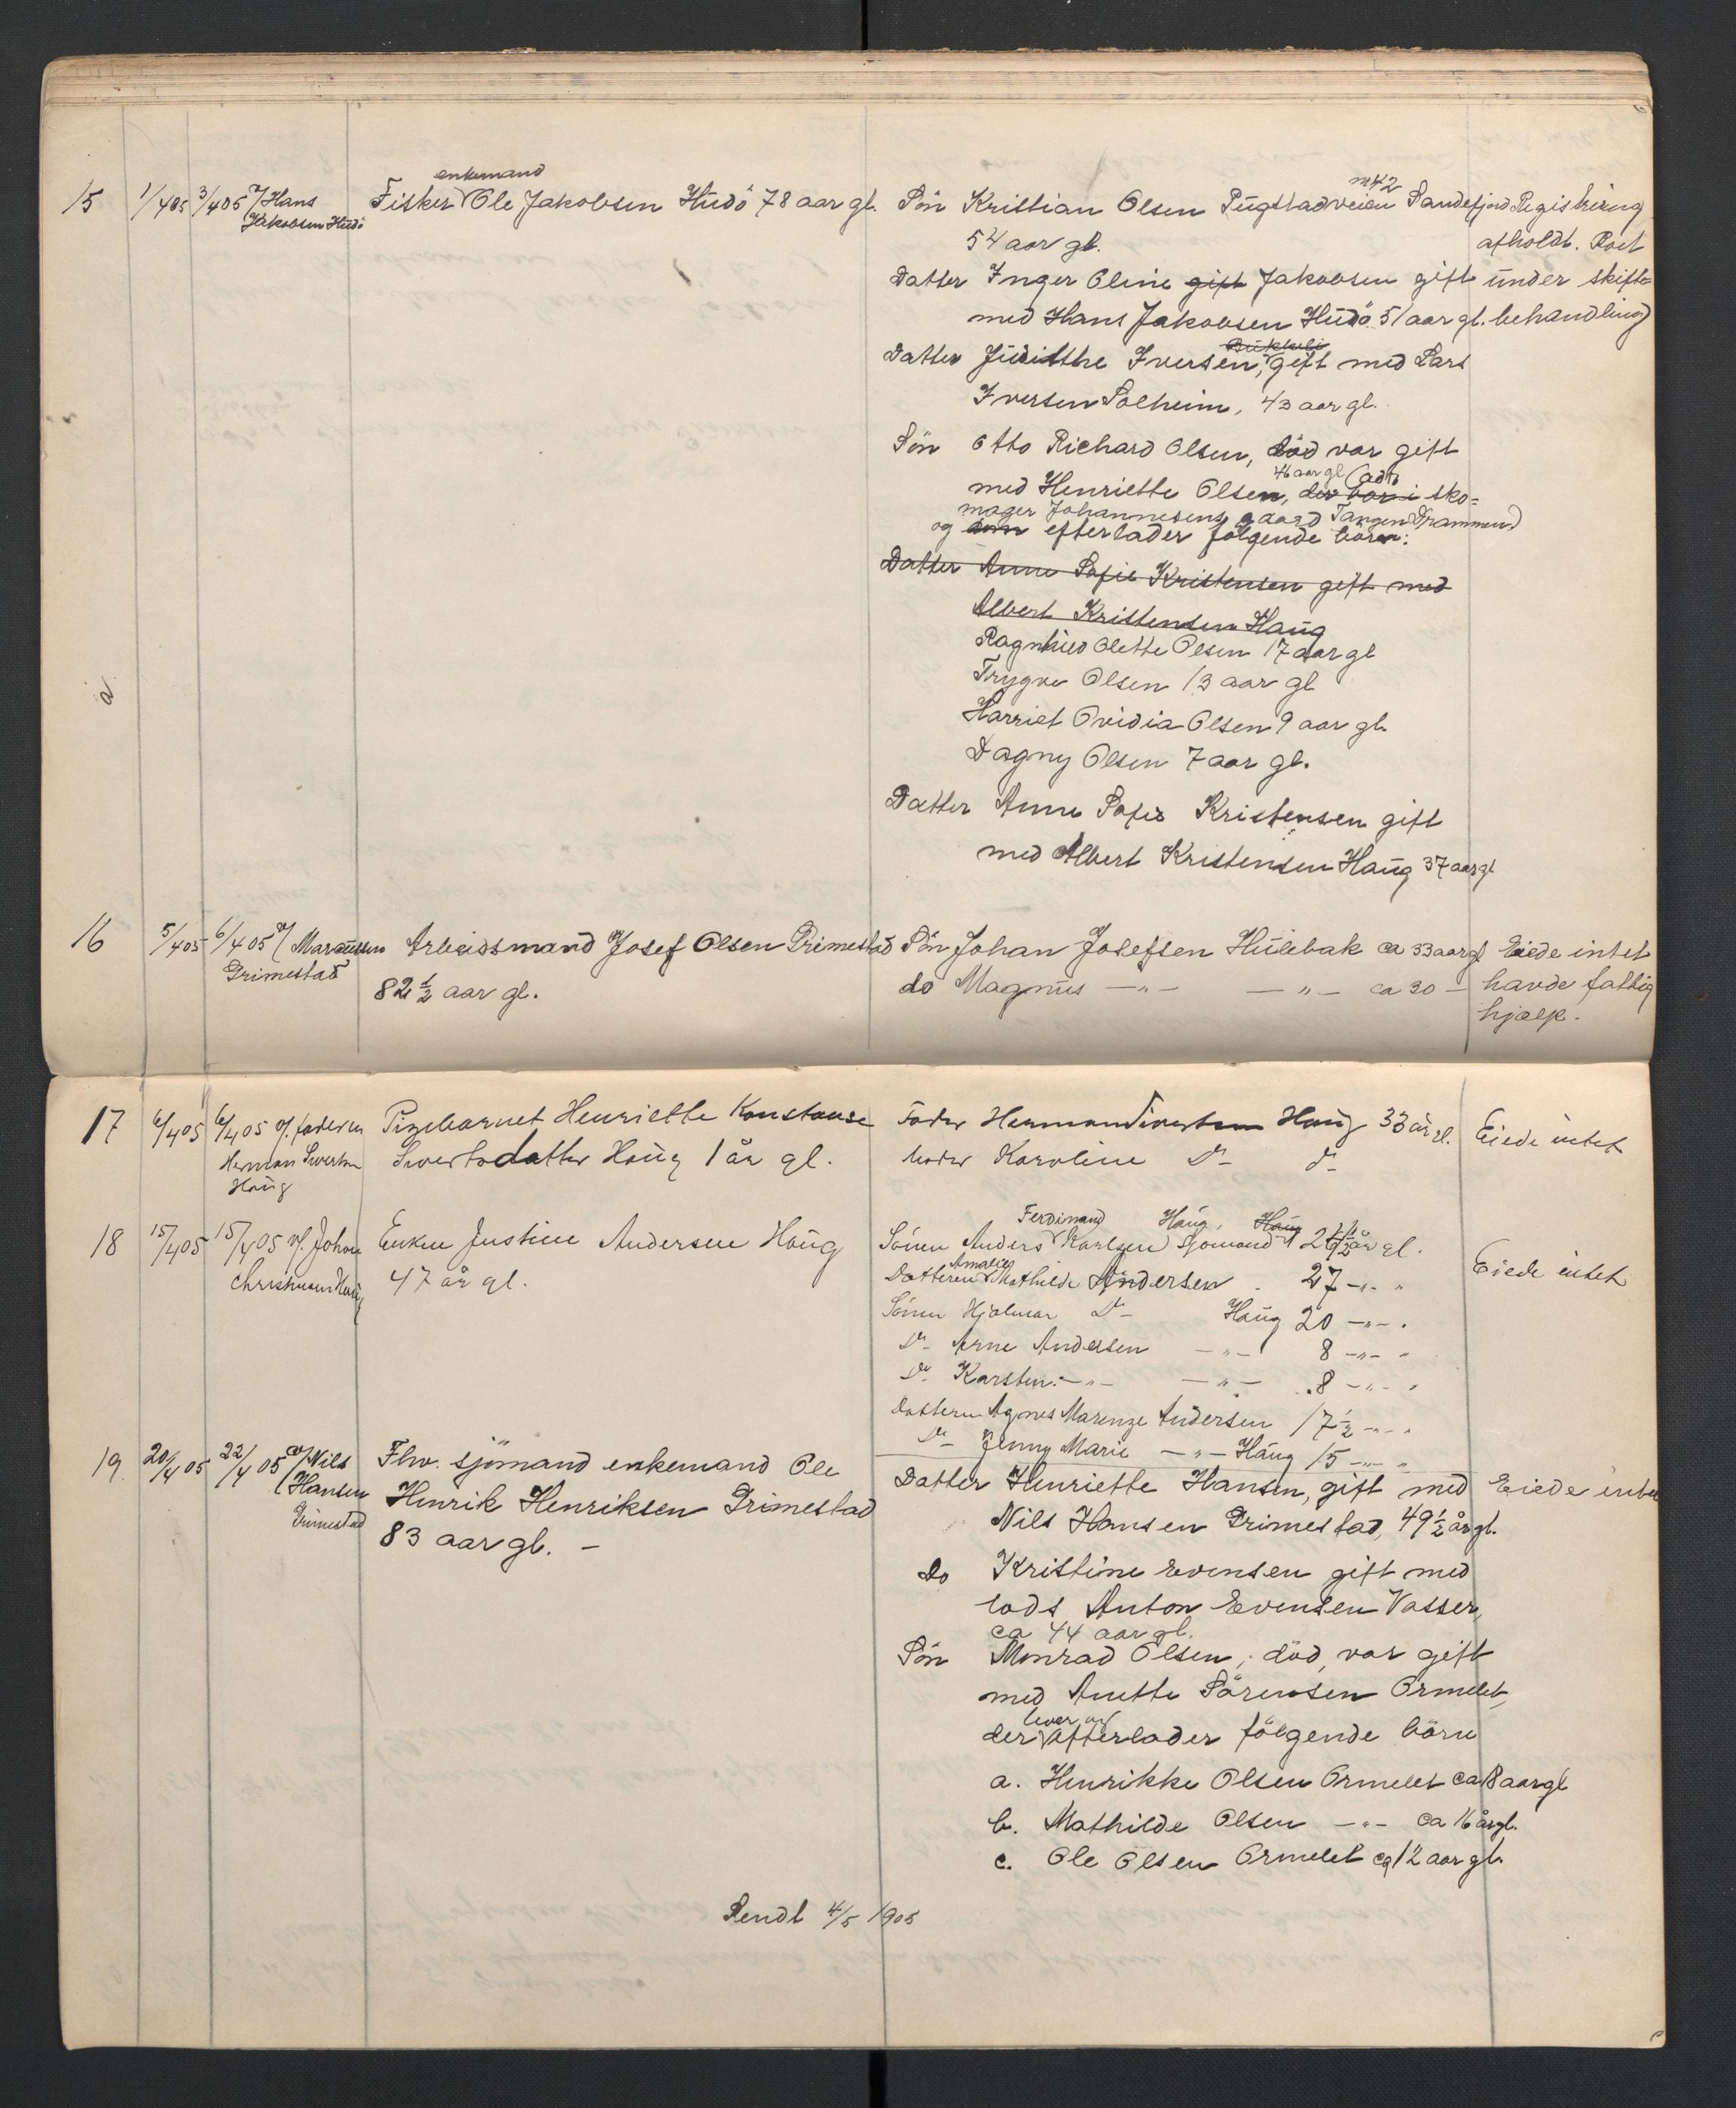 enkemand
15 1/405 3/405 af Hans Fisker Ole Jakobsen Hudö 78 aar gl. Sön Kristian Olsen Pugstadveien Sandefjord Registrering
Jakobsen Hudö
54 aar gl. afholdt. Boet
Datter Inger Oline gift Jakobsen gift under skifte=
med Hans Jakobsen Hudö 51 aar gl. behandling
Datter Judithe Iversen, gift med Lars
Iversen Solheim, 43 aar gl.
Sön Otto Richard Olsen, död var gift
46 aar gl (adr
med Henriette Olsen, der bor i sko=
mager Johannesens gaard Tangen Drammen)
og som efterlader følgende børn:
Datter Anne Sofie Kristensen gift med
Albert Kristensen Haug
Ragnhild Olette Olsen 17 aar gl
Trygve Olsen 13 aar gl
Harriet Ovidia Olsen 9 aar gl.
Dagny Olsen 7 aar gl.
Datter Anne Sofie Kristensen gift
med Albert Kristensen Haug 37 aar gl
16 5/405 6/405 af Marcussen Arbeidsmand Josef Olsen Grimestad Sön Johan Josefsen Hulebak ca 33 aar gl Eiede intet
Grimestad 82 1/2 aar gl. do Magnus —"— —"— ca 30 — havde fattig
hjælp.
17 6/405 6/405 af faderen Pigebarnet Henriette Konstanse Fader Herman Sivertsen Haug 33 år gl. Eiede intet
Herman Sivertsen Sivertsdatter Haug 1 år gl. Moder Karoline Do Do
Haug
Ferdinand Haug, Haug
18 15/405 15/405 af Johan Enken Justine Andersen Haug Sönnen Anders Karlsen Sjömand år gl.
Christiansen Haug 47 år gl. Datteren Amalie Mathilde Andersen 27 —"— " Eiede intet
Sönnen Hjalmar Do Haug 20 —"— "
Do Arne Andersen —"— 8 —"— "
Do Karsten —"— —"— 8 —"— "
Datteren Agnes Marenze Andersen 17 1/2 —"— "
Do Jenny Marie —"— Haug 15 —"— "
19 20/405 22/405 af Nils Fhv. sjömand enkemand Ole Datter Henriette Hansen, gift med Eiede intet
Hansen Henrik Henriksen Grimestad Nils Hansen Grimestad, 49 1/2 år gl.
Grimestad 83 aar gl. –
do Kristine Evensen gift med
lods Anton Evensen Vasser,
ca 44 aar gl.
Sön Monrad Olsen, död, var gift
med Anette Sørensen Ormelet,
lever og
der efterlader følgende børn
a. Henrikke Olsen Ormelet ca 18 aar gl
b. Mathilde Olsen —"— ca 16 år gl.
c. Ole Olsen Ormelet ca 12 aar gl.
Sendt 4/5 1905